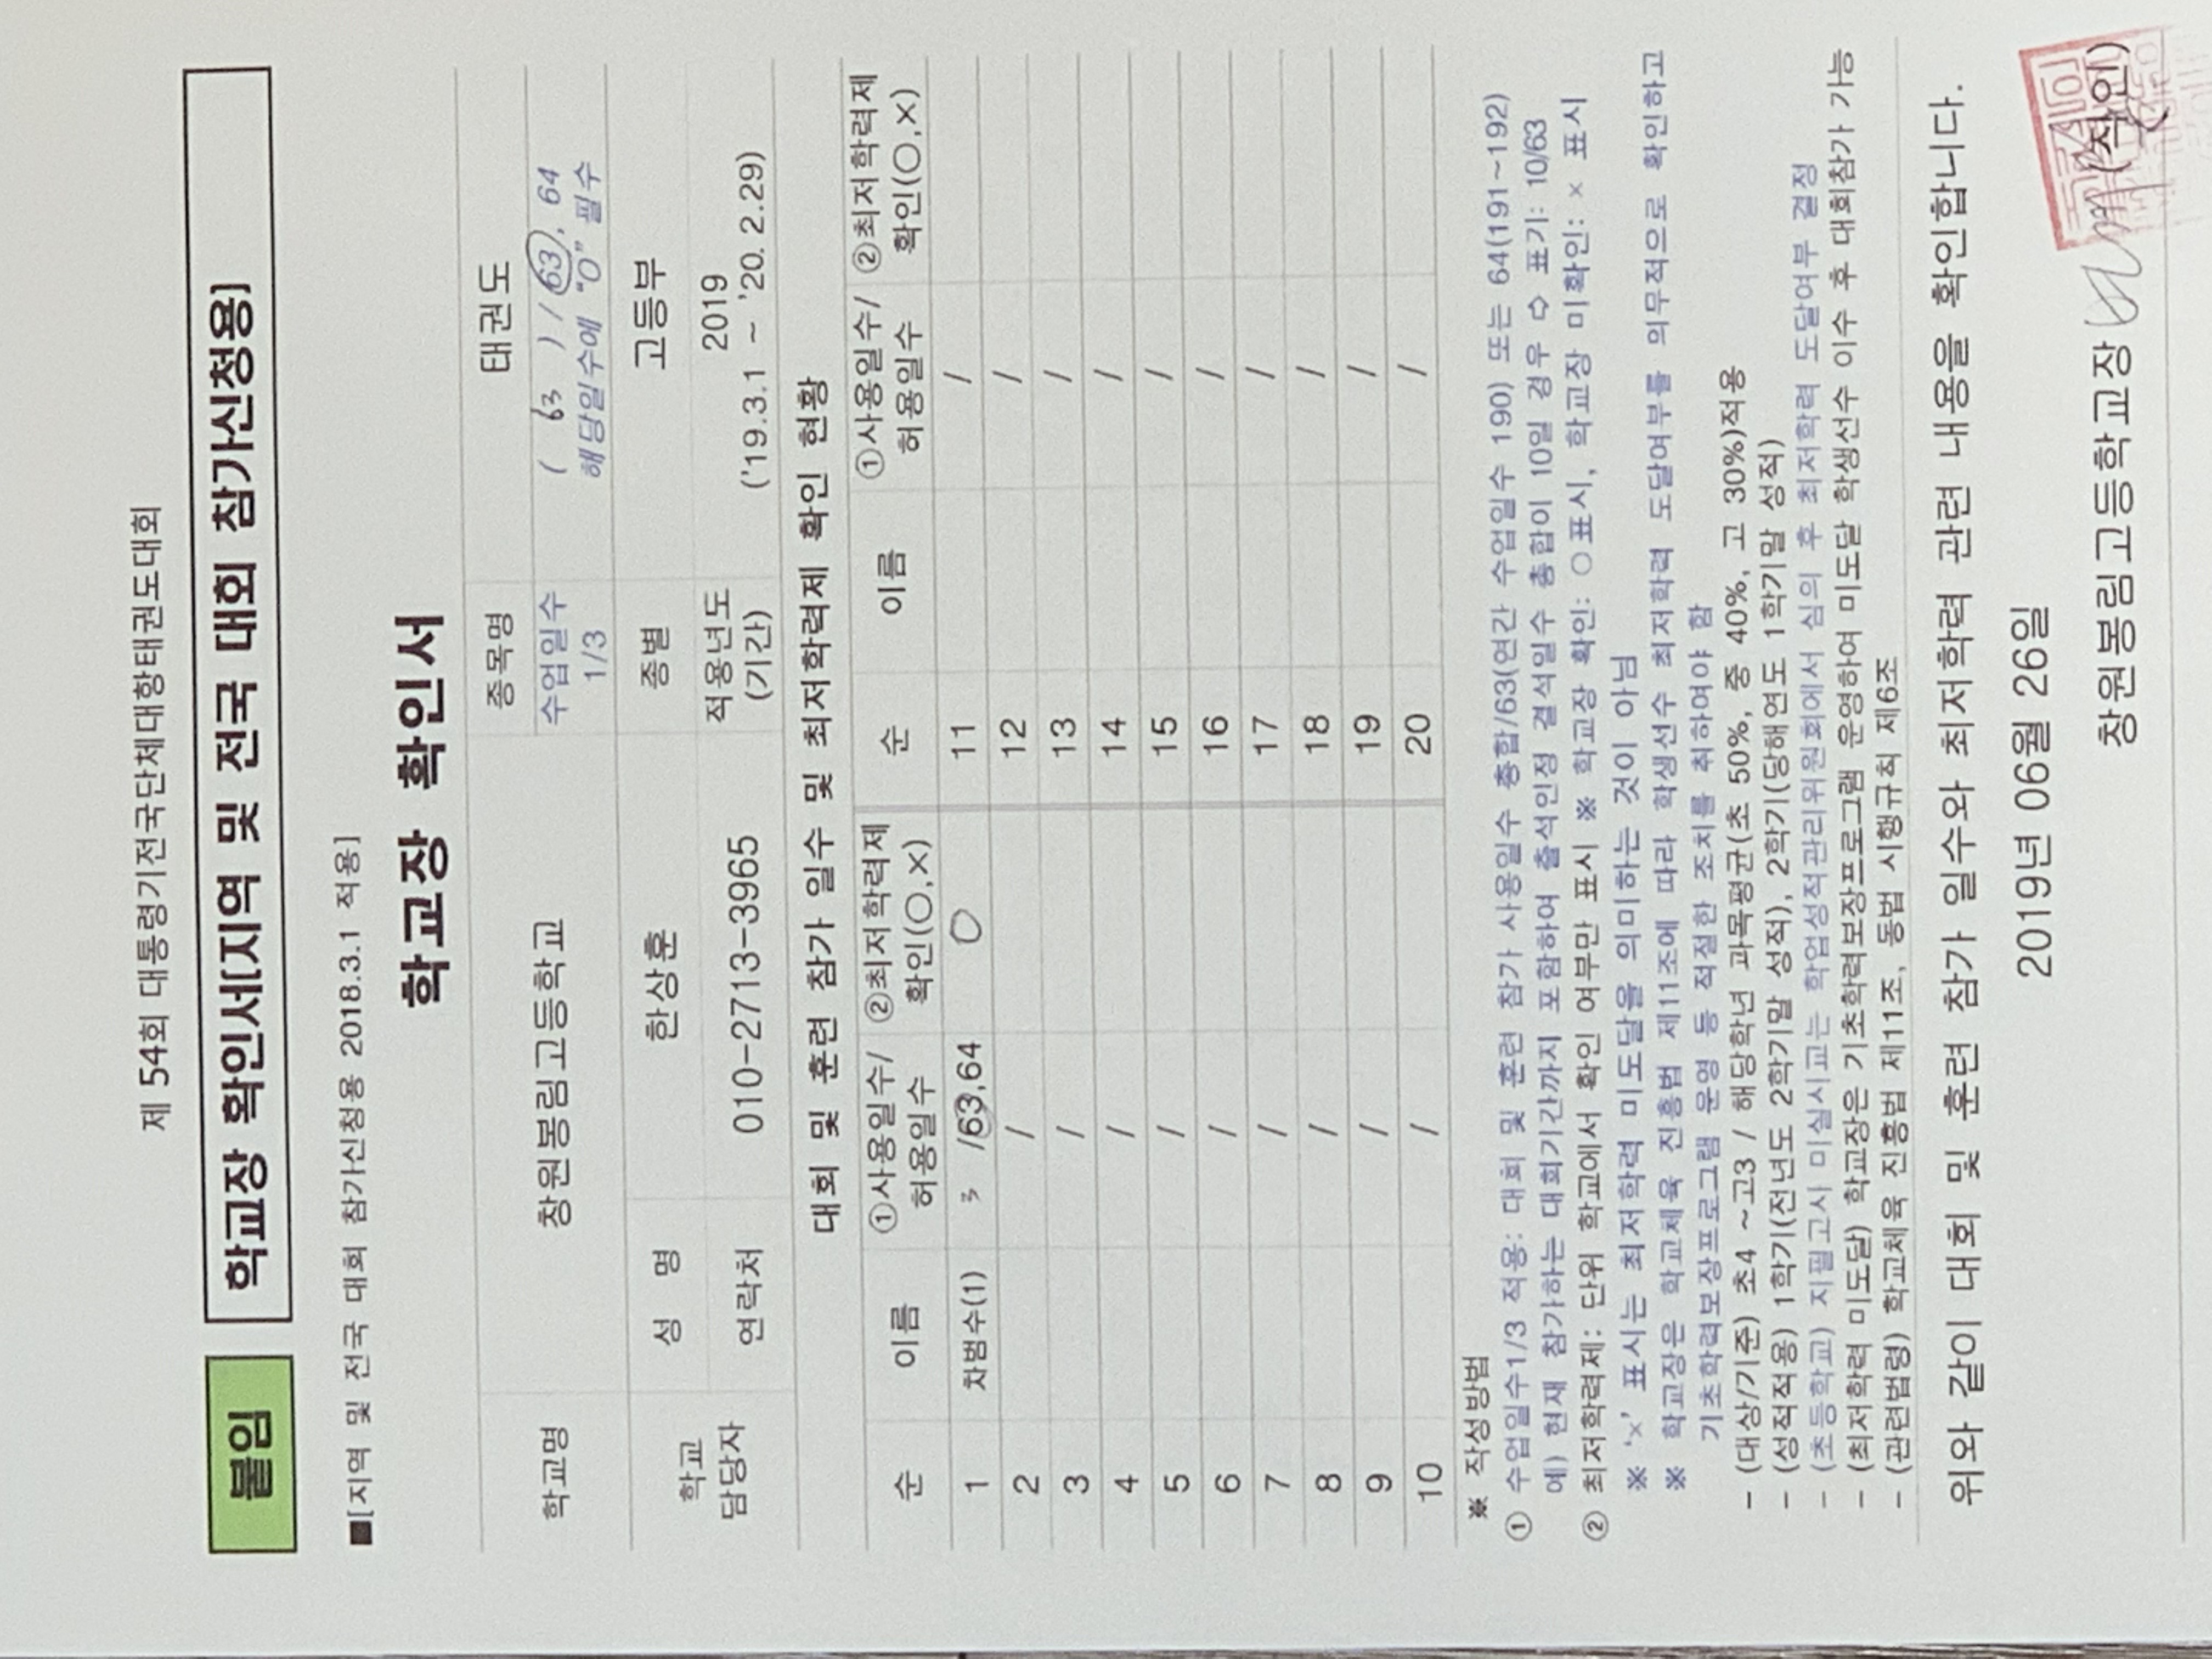 제 54회 대통령기전국단체대항태권도대회
붙임 학교장 확인서[지역 및 전국 대회 참가신청용]
■[지역 및 전국 대회 참가신청용 2018.3.1 적용]
학교장 확인서
학교명 창원봉림고등학교 종목명 태권도
수업일수 1/3 ( 63 ) / 63, 64
해당일수에 "O" 필수
학교 담당자 성 명 한상훈 종별 고등부
연락처 010-2713-3965 적용년도 (기간) 2019
('19.3.1 ~ '20. 2.29)
대회 및 훈련 참가 일수 및 최저학력제 확인 현황
순 이름 ①사용일수/ 허용일수 ②최저학력제 확인(○,×) 순 이름 ①사용일수/ 허용일수 ②최저학력제 확인(○,×)
1 차범수(1) 3 /63,64 O 11 /
2 / 12 /
3 / 13 /
4 / 14 /
5 / 15 /
6 / 16 /
7 / 17 /
8 / 18 /
9 / 19 /
10 / 20 /
※ 작성방법
① 수업일수1/3 적용: 대회 및 훈련 참가 사용일수 총합/63(연간 수업일수 190) 또는 64(191~192)
예) 현재 참가하는 대회기간까지 포함하여 출석인정 결석일수 총합이 10일 경우 ⇨ 표기: 10/63
② 최저학력제: 단위 학교에서 확인 여부만 표시 ※ 학교장 확인: ○표시, 학교장 미확인: × 표시
※ '×' 표시는 최저학력 미도달을 의미하는 것이 아님
※ 학교장은 학교체육 진흥법 제11조에 따라 학생선수 최저학력 도달여부를 의무적으로 확인하고
기초학력보장프로그램 운영 등 적절한 조치를 취하여야 함
- (대상/기준) 초4 ~고3 / 해당학년 과목평균(초 50%, 중 40%, 고 30%)적용
- (성적적용) 1학기(전년도 2학기말 성적), 2학기(당해연도 1학기말 성적)
- (초등학교) 지필고사 미실시교는 학업성적관리위원회에서 심의 후 최저학력 도달여부 결정
- (최저학력 미도달) 학교장은 기초학력보장프로그램 운영하여 미도달 학생선수 이수 후 대회참가 가능
- (관련법령) 학교체육 진흥법 제11조, 동법 시행규칙 제6조
위와 같이 대회 및 훈련 참가 일수와 최저학력 관련 내용을 확인합니다.
2019년 06월 26일
창원봉림고등학교장 (직인)